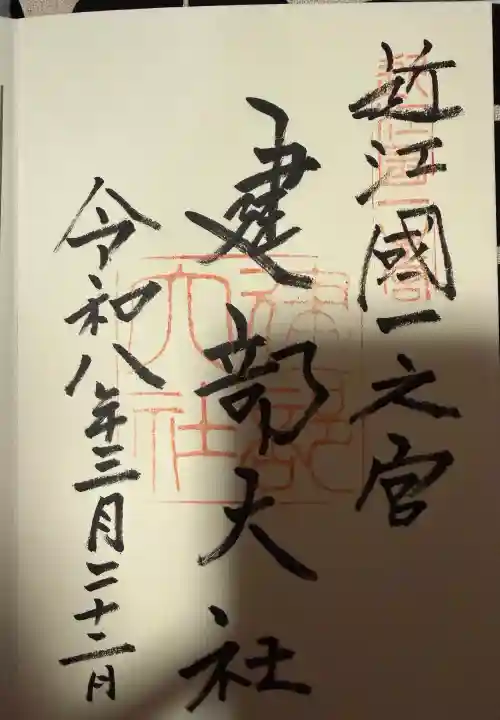 近江國一之宮
建部大社
令和八年三月二十二日
近江国一之宮
建部大社